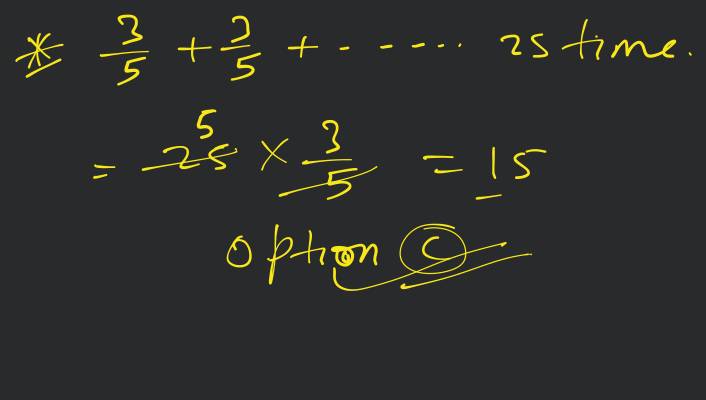 * 3/5 + 3/5 + - - - - - .. 25 time.
= 5 25 × 3/5 = 15
option C